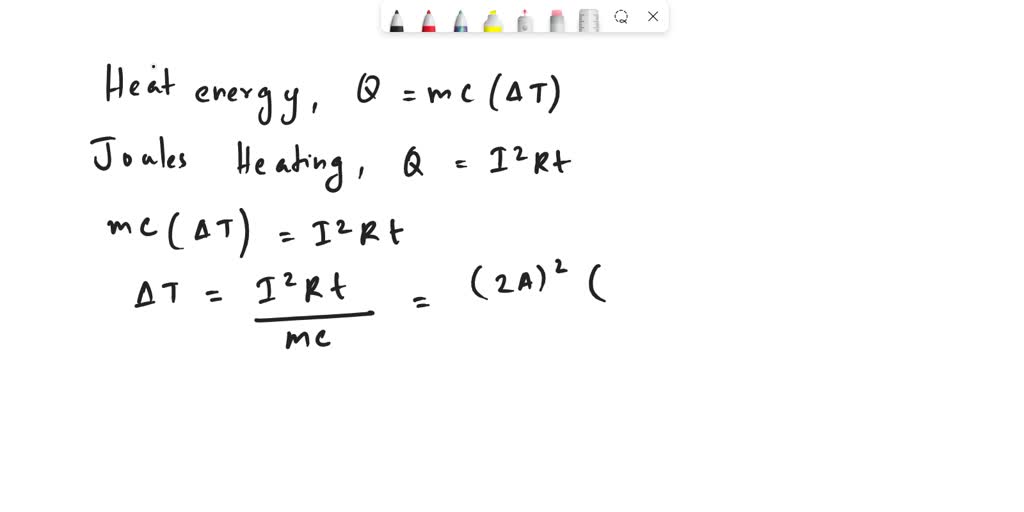 Heat energy, Q = mc (ΔT)
Joules Heating, Q = I²Rt
mc (ΔT) = I²Rt
ΔT = I²Rt / mc = (2A)² (